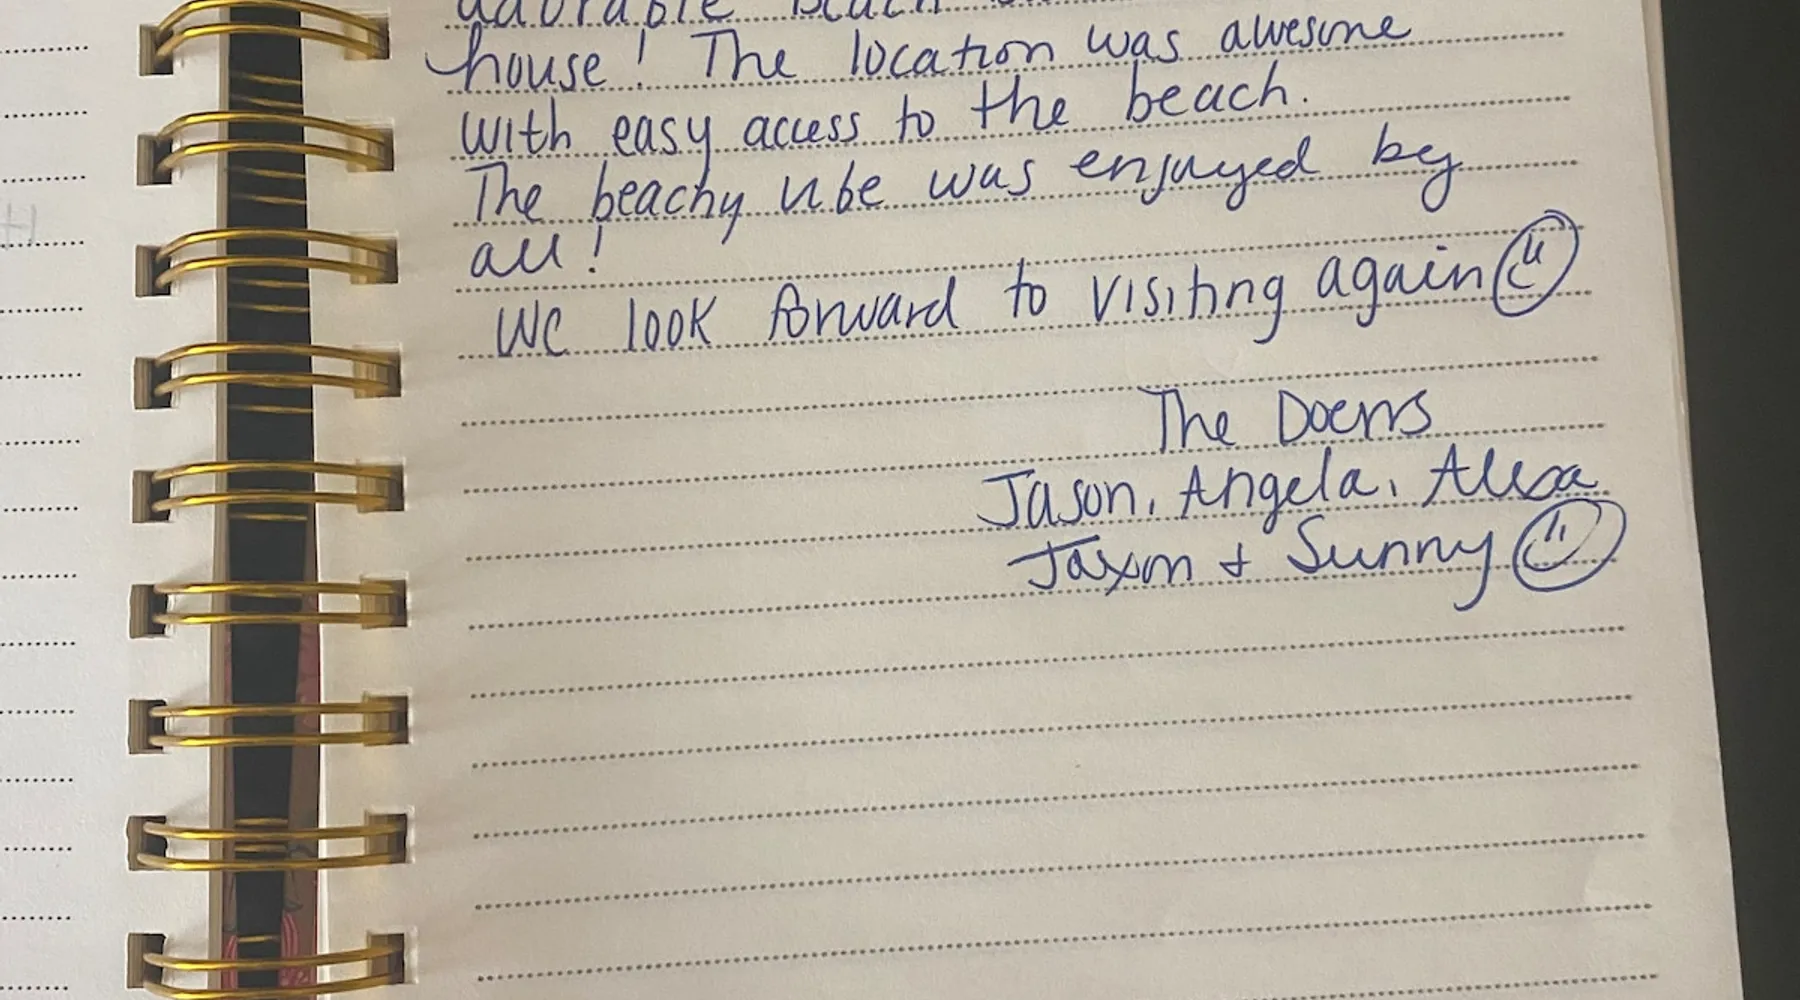 adorable beach
house! The location was awesome
with easy access to the beach.
The beachy vibe was enjoyed by
all!
We look forward to visiting again
The Doerrs
Jason, Angela, Alexa
Jaxon + Sunny